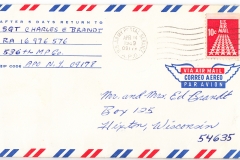 AFTER 5 DAYS RETURN TO
SGT CHARLES E BRANDT
RA 16 976 576
536th MP Co.
APO N.Y. 09178
10¢
VIA AIR MAIL
CORREO AEREO
PAR AVION
Mr. and Mrs Ed Brandt
Box 125
Hixton, Wisconsin
54635